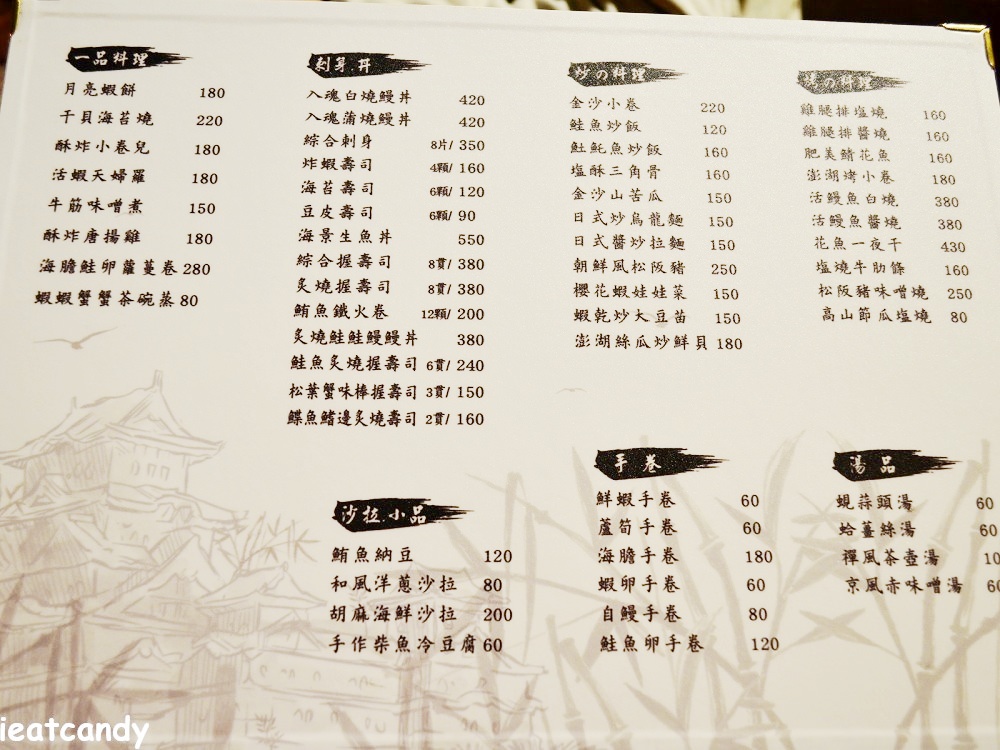 一品料理
月亮蝦餅 180
干貝海苔燒 220
酥炸小卷兒 180
活蝦天婦羅 180
牛筋味噌煮 150
酥炸唐揚雞 180
海膽鮭卵蘿蔓卷 280
蝦蝦蟹蟹茶碗蒸 80
刺身.丼
入魂白燒鰻丼 420
入魂蒲燒鰻丼 420
綜合刺身 8片/ 350
炸蝦壽司 4顆/ 160
海苔壽司 6顆/ 120
豆皮壽司 6顆/ 90
海景生魚丼 550
綜合握壽司 8貫/ 380
炙燒握壽司 8貫/ 380
鮪魚鐵火卷 12顆/ 200
炙燒鮭鮭鰻鰻丼 380
鮭魚炙燒握壽司 6貫/ 240
松葉蟹味棒握壽司 3貫/ 150
鰈魚鰭邊炙燒握壽司 2貫/ 160
沙拉.小品
鮪魚納豆 120
和風洋蔥沙拉 80
胡麻海鮮沙拉 200
手作柴魚冷豆腐 60
炒の料理
金沙小卷 220
鮭魚炒飯 120
𩵚魠魚炒飯 160
塩酥三角骨 160
金沙山苦瓜 150
日式炒烏龍麵 150
日式醬炒拉麵 150
朝鮮風松阪豬 250
櫻花蝦娃娃菜 150
蝦乾炒大豆苗 150
澎湖絲瓜炒鮮貝 180
手卷
鮮蝦手卷 60
蘆筍手卷 60
海膽手卷 180
蝦卵手卷 60
自鰻手卷 80
鮭魚卵手卷 120
燒の料理
雞腿排塩燒 160
雞腿排醬燒 160
肥美鯖花魚 160
澎湖烤小卷 180
活鰻魚白燒 380
活鰻魚醬燒 380
花魚一夜干 430
塩燒牛肋條 160
松阪豬味噌燒 250
高山節瓜塩燒 80
湯品
蜆蒜頭湯 60
蛤薑絲湯 60
禪風茶壺湯 10
京風赤味噌湯 60
ieatcandy